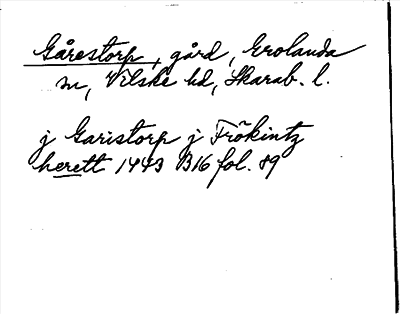 Gårestorp, gård, Grolanda
sn, Vilske hd, Skarab. l.
j Garistorp j Frökintz
herett 1443 B16 fol. 89